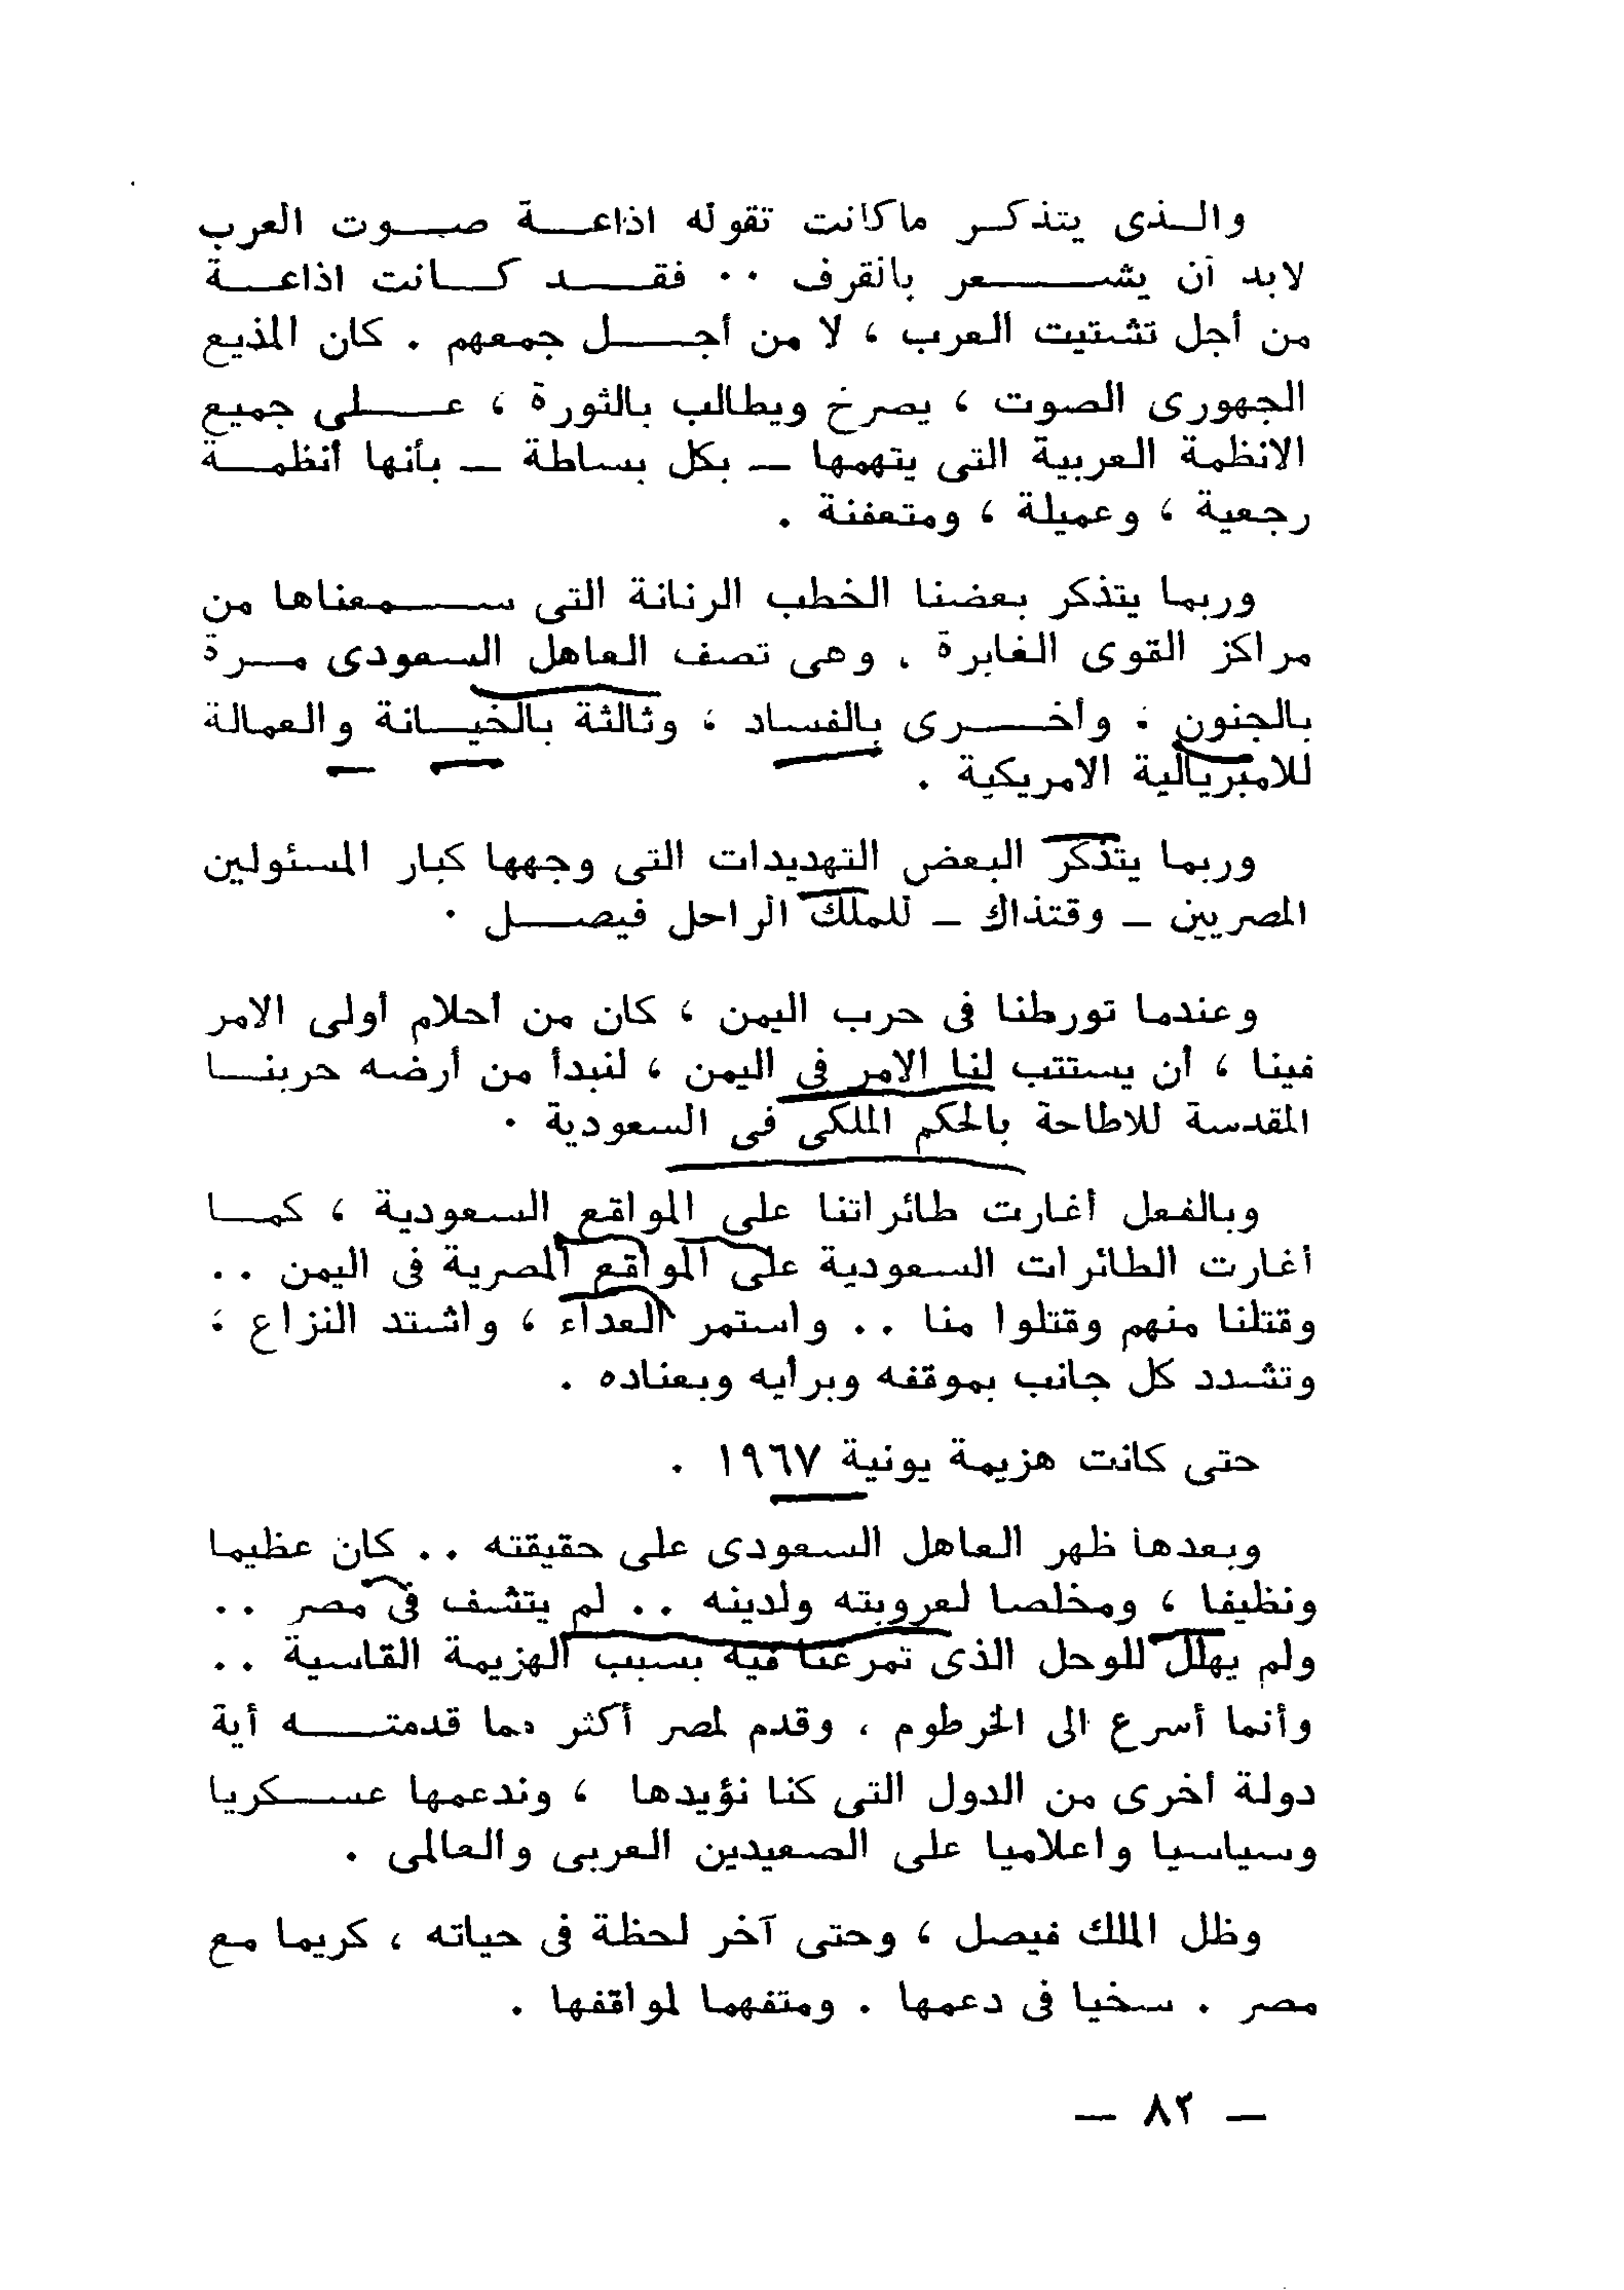 والذى يتذكر ماكانت تقوله اذاعة صوت العرب
لابد أن يشعر بالقرف .. فقد كانت اذاعة
من أجل تشتيت العرب ، لا من أجل جمعهم . كان المذيع
الجهورى الصوت ، يصرخ ويطالب بالثورة ، على جميع
الانظمة العربية التى يتهمها — بكل بساطة — بأنها أنظمة
رجعية ، وعميلة ، ومتعفنة .
وربما يتذكر بعضنا الخطب الرنانة التى سمعناها من
مراكز القوى الغابرة . وهى تصف العاهل السعودى مرة
بالجنون . وأخرى بالفساد ، وثالثة بالخيانة والعمالة
للامبريالية الامريكية .
وربما يتذكر البعض التهديدات التى وجهها كبار المسئولين
المصريين — وقتذاك — للملك الراحل فيصل .
وعندما تورطنا فى حرب اليمن ، كان من أحلام أولى الامر
فينا ، أن يستتب لنا الامر فى اليمن ، لنبدأ من أرضه حربنا
المقدسة للاطاحة بالحكم الملكى فى السعودية .
وبالفعل أغارت طائراتنا على المواقع السعودية ، كما
أغارت الطائرات السعودية على المواقع المصرية فى اليمن ..
وقتلنا منهم وقتلوا منا .. واستمر العداء ، واشتد النزاع ،
وتشدد كل جانب بموقفه وبرأيه وبعناده .
حتى كانت هزيمة يونية ١٩٦٧ .
وبعدها ظهر العاهل السعودى على حقيقته .. كان عظيما
ونظيفا ، ومخلصا لعروبته ولدينه .. لم يتشف فى مصر ..
ولم يهلل للوحل الذى تمرغنا فيه بسبب الهزيمة القاسية ..
وأنما أسرع الى الخرطوم ، وقدم لمصر أكثر مما قدمته أية
دولة أخرى من الدول التى كنا نؤيدها ، وندعمها عسكريا
وسياسيا واعلاميا على الصعيدين العربى والعالمى .
وظل الملك فيصل ، وحتى آخر لحظة فى حياته ، كريما مع
مصر . سخيا فى دعمها . ومتفهما لمواقفها .
— ٨٢ —